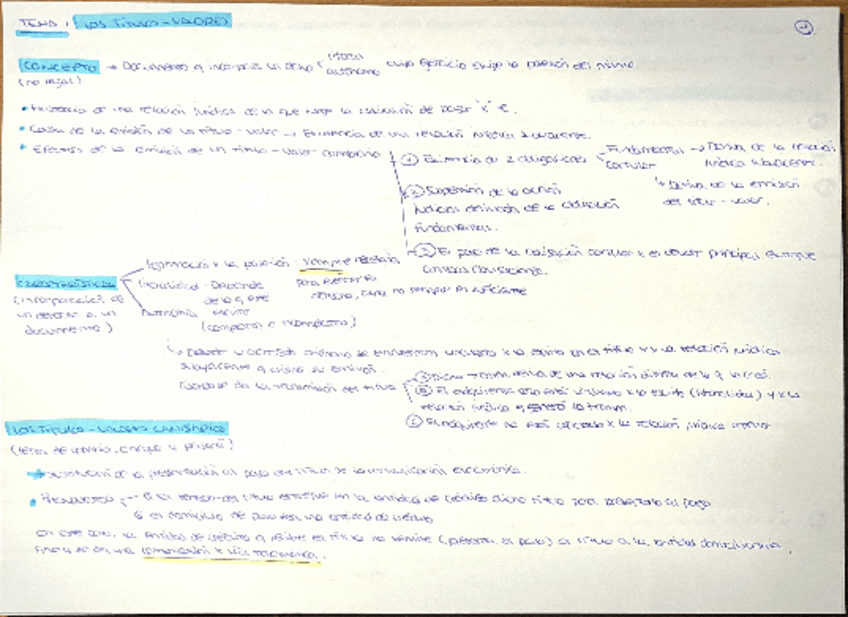 TEMA 1 LOS TÍTULOS-VALORES
1
CONCEPTO → Documento q incorpora un dcho literal autónomo cuyo ejercicio exige la posesión del mismo.
(no legal)
• Existencia de una relación jurídica de la que surge la obligación de pagar "x" €.
• Causa de la emisión de un título-valor → Existencia de una relación jurídica subyacente.
• Efectos de la emisión de un título-valor cambiario
① Existencia de 2 obligaciones
Fundamental → Deriva de la relación jurídica subyacente.
Cambiaria
↳ Deriva de la emisión del título-valor.
② Suspensión de la acción
jurídica derivada de la obligación
fundamental.
③ El pago de la obligación cambiaria x el deudor principal extingue
ambas obligaciones.
CARACTERÍSTICAS
(incorporación de
un derecho a un
documento)
Legitimación x la posesión: siempre necesaria
para ejercitar el
derecho, pero no siempre es suficiente
Literalidad: Depende
de lo q esté
escrito
Autonomía
(completa o incompleta)
↳ Deudor y acreedor se encuentran vinculados x lo escrito en el título y x la relación jurídica
subyacente q causó su emisión.
la transmisión del título
Ⓐ Dicha transm. deriva de una relación distinta de la q la creó.
Ⓑ El adquirente solo está vinculado x lo escrito (literalidad) y x la
relación jurídica q generó la transm.
Ⓒ El adquirente no está vinculado x la relación jurídica
LOS TÍTULOS-VALORES CAMBIARIOS
(letra de cambio, cheque y pagaré)
Sustitución de la presentación al pago del título x la comunicación electrónica.
• Requisitos: - Q el tenedor del título entregue en una entidad de crédito dicho título para su pago
Q el domicilio de pago sea una entidad de crédito
En este caso, la entidad de crédito q recibe el título no remite (presenta al pago) el título a la entidad domiciliataria,
sino q se da una comunicación x vía telemática.